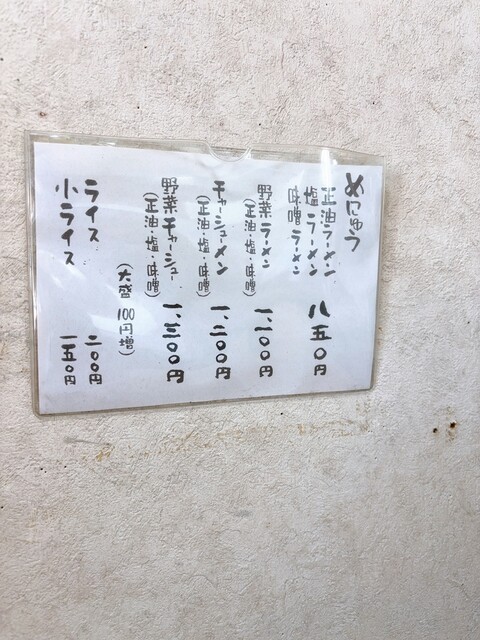 めにゅう
正油ラーメン
塩ラーメン
味噌ラーメン
八五〇円
野菜ラーメン
(正油・塩・味噌)
一、一〇〇円
チャーシューメン
(正油・塩・味噌)
一、二〇〇円
野菜チャーシュー
(正油・塩・味噌)
一、三〇〇円
(大盛 100円増)
ライス 二〇〇円
小ライス 一五〇円